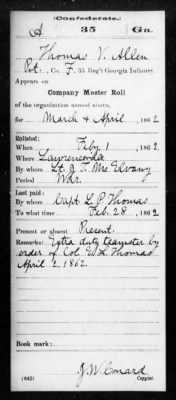 Confederate.
A 35 Ga.
Thomas V. Allen
Pvt., Co. F, 35 Reg't Georgia Infantry.
Appears on
Company Muster Roll
of the organization named above,
for March & April, 1862
Enlisted:
When Feby 1, 1862
Where Lawrenceville
By whom Lt. J. T. McElvany
Period War.
Last paid:
By whom Capt. L. P. Thomas
To what time Feb. 28, 1862
Present or absent Present.
Remarks: Extra duty teamster by
order of Col. E. L. Thomas
April 2, 1862.
Book mark:
J. W. Conard
(642) Copyist.